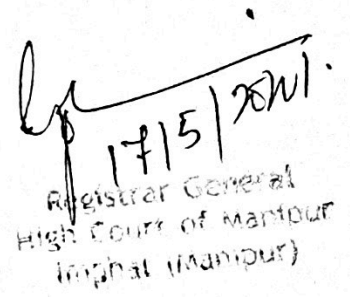 17/5/2021.
Registrar General
High Court of Manipur
Imphal (Manipur)